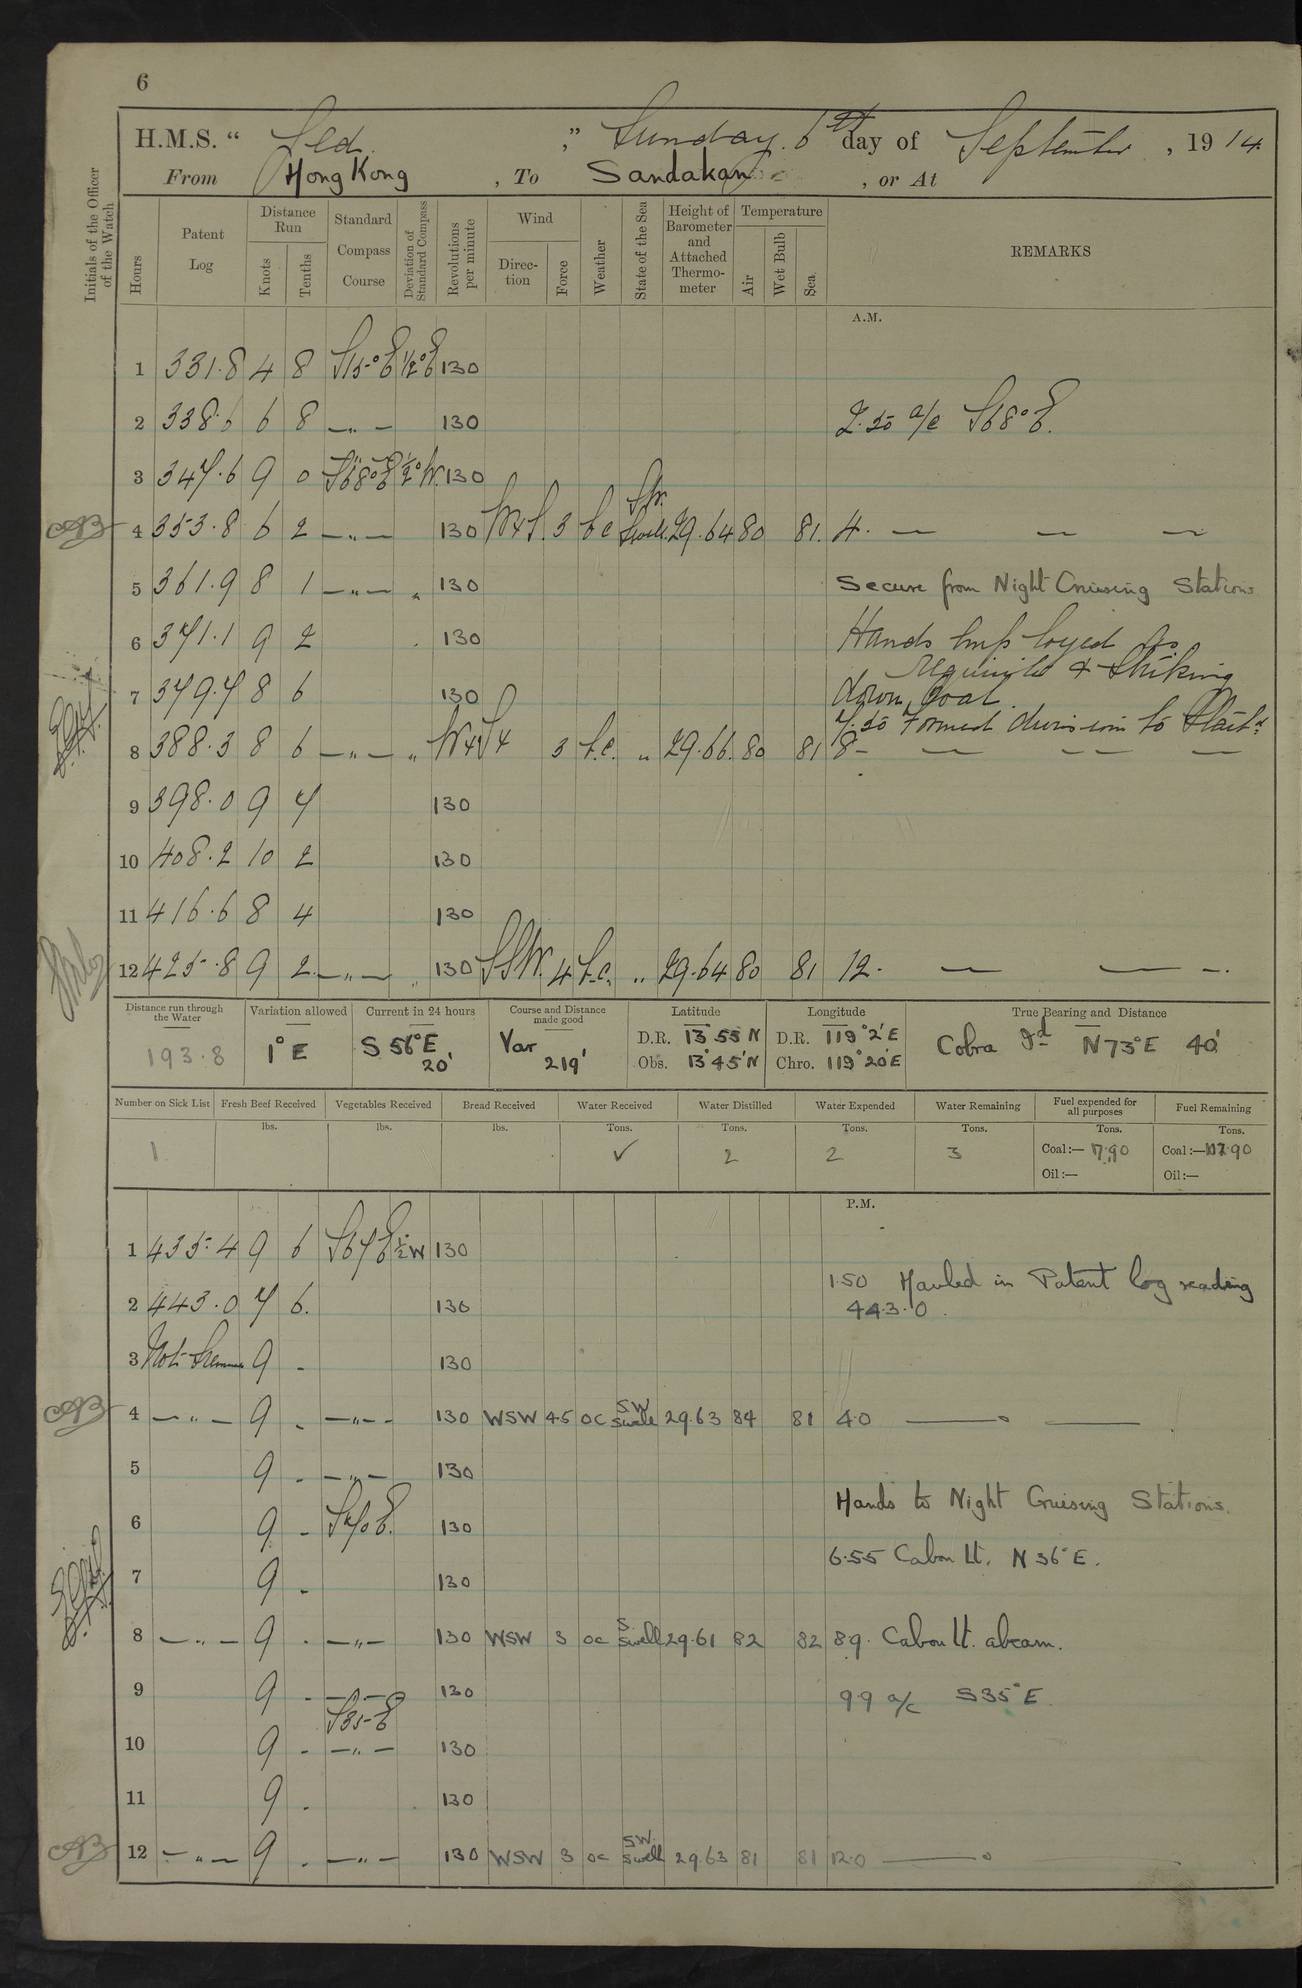 6
H.M.S. " Sed ", Sunday 6th day of September, 1914.
From Hong Kong, To Sandakan, or At
Initials of the Officer of the Watch
Hours
Patent Log
Distance Run
Knots
Tenths
Standard Compass Course
Deviation of Standard Compass
Revolutions per minute
Wind
Direction
Force
Weather
State of the Sea
Height of Barometer and Attached Thermometer
Temperature
Air
Wet Bulb
Sea
REMARKS
A.M.
1 331.8 4 8 S15°E ½°E 130
2 338.6 6 8 —"— 130 2.50 a/c S68°E.
3 347.6 9 0 S68°E ½°W. 130
4 353.8 6 2 —"— 130 WxS. 3 bc SW. Swell. 29.64 80 81. 4. — — —
5 361.9 8 1 —"— " 130 Secure from Night Cruising Stations
6 371.1 9 2 130 Hands employed as
requisite & striking
7 379.7 8 6 130 down Coal.
7.30 Formed division to Starbd.
8 388.3 8 6 —"— " WxS 3 b.c. " 29.66. 80 81 8 — — — —
9 398.0 9 7 130
10 408.2 10 2 130
11 416.6 8 4 130
12 425.8 9 2 —"— " 130 SSW. 4 b.c. " 29.64 80 81 12. — — —
Distance run through the Water 193.8
Variation allowed 1° E
Current in 24 hours S 56°E 20'
Course and Distance made good Var 219'
Latitude D.R. 13°55 N Obs. 13°45'N
Longitude D.R. 119°2'E Chro. 119°20'E
True Bearing and Distance Cobra Id N73°E 40'
Number on Sick List
Fresh Beef Received
Vegetables Received
Bread Received
Water Received
Water Distilled
Water Expended
Water Remaining
Fuel expended for all purposes
Fuel Remaining
lbs. lbs. lbs. Tons. Tons. Tons. Tons. Tons. Tons.
1 ✓ 2 2 3 Coal:— 17.90 Coal:— 117.90
Oil:— Oil:—
P.M.
1 435.4 9 6 S67E ½°W 130
1.50 Hauled in Patent log reading
2 443.0 7 6. 130 443.0.
3 Not Streamed 9 - 130
4 —"— 9 - —"— 130 WSW 4.5 oc SW Swell 29.63 84 81 4.0 — —
5 9 - —"— 130
Hands to Night Cruising Stations.
6 9 - S70E. 130
6.55 Cabon Lt. N 36°E.
7 9 - 130
8 —"— 9 - —"— 130 WSW 3 oc S. Swell 29.61 82 82 8.9. Cabon Lt. abeam.
9 9 - —"— 130 9.9 a/c S35°E
S35E
10 9 - —"— 130
11 9 - 130
12 —"— 9 - —"— 130 WSW 3 oc SW. Swell 29.63 81 81 12.0 —